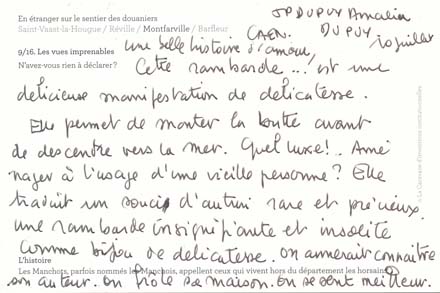 En étranger sur le sentier des douaniers
Saint-Vaast-la-Hougue / Réville / Montfarville / Barfleur
JP DUPUY Amalia
CAEN. DUPUY
10 juillet
9/16. Les vues imprenables
une belle histoire d'amour,
N'avez-vous rien à déclarer ?
Cette rambarde ... est une
délicieuse manifestation de délicatesse.
Elle permet de monter la butte avant
de descendre vers la mer. Quel luxe!. Amé
nager à l'usage d'une vieille personne? Elle
traduit un souci d'autrui rare et précieux.
une rambarde insignifiante et insolite
comme bijou de délicatesse. on aimerait connaître
L'histoire
Les Manchots, parfois nommés les Manchois, appellent ceux qui vivent hors du département les horsains.
son auteur. on frôle sa maison. on se sent meilleur.